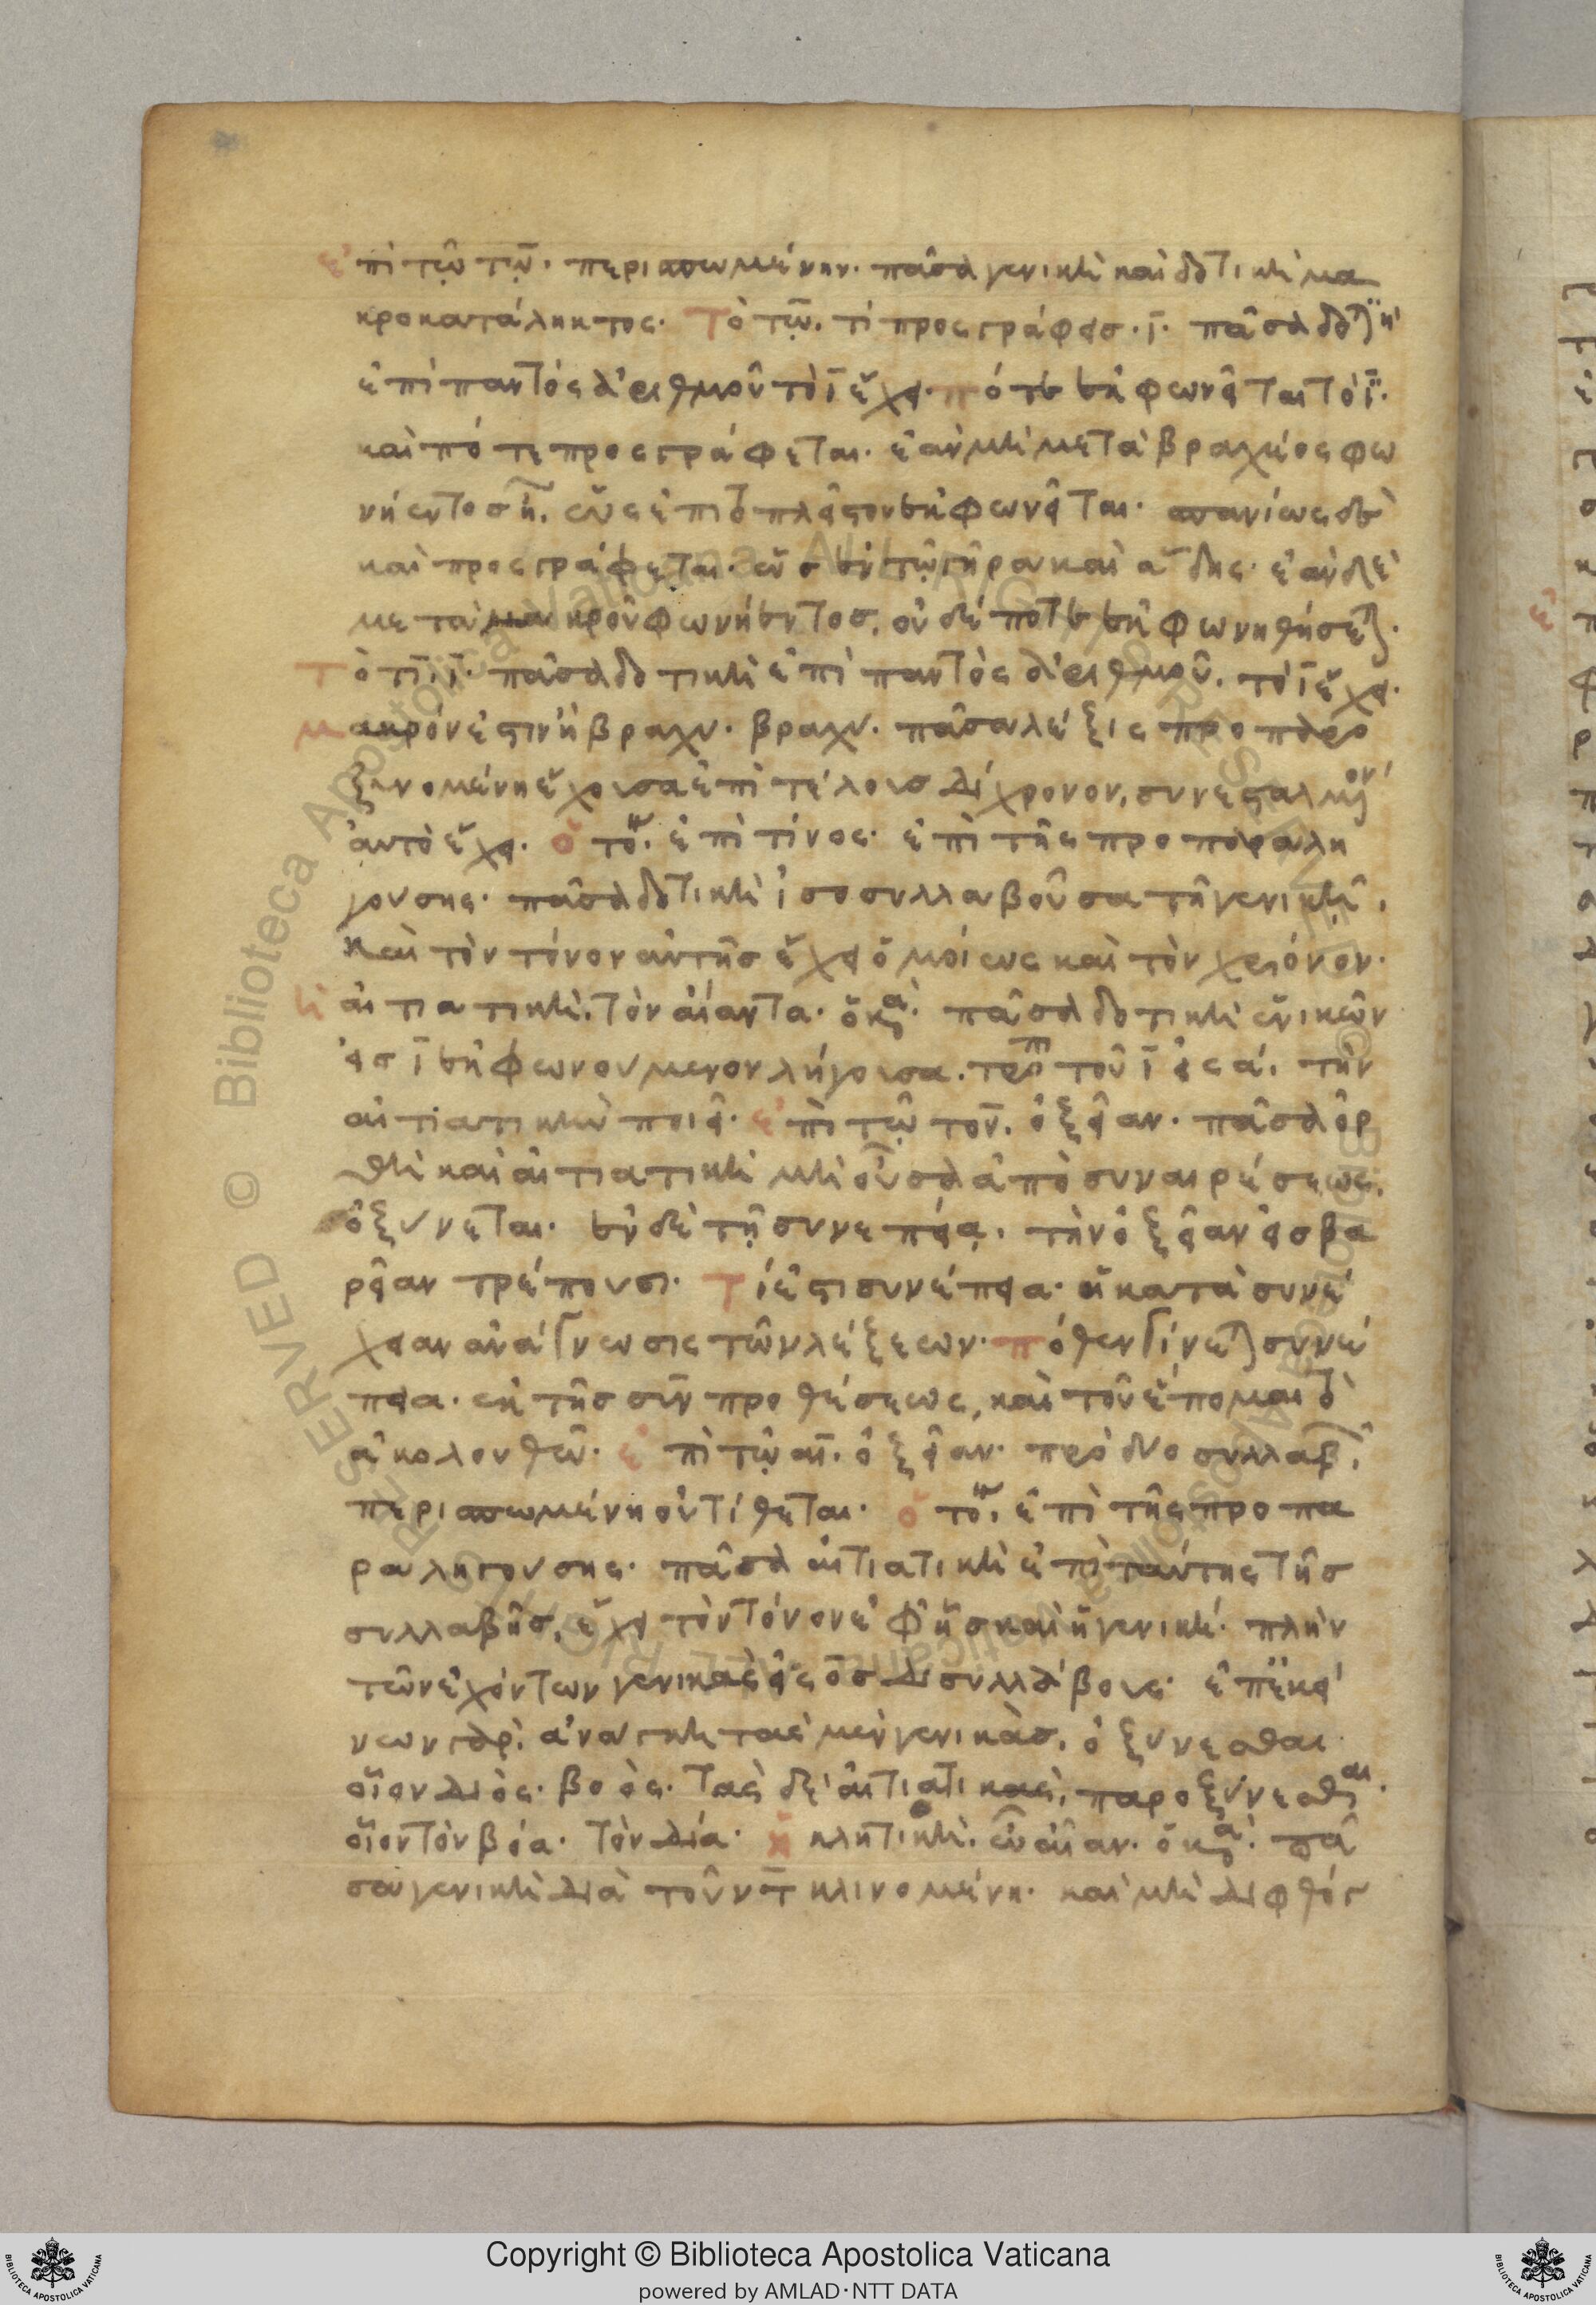 ἐπὶ τῷ τῷ. περισπωμένην. πᾶσα γενικὴ καὶ δοτικὴ μα
κροκατάληκτος. Τὸ τῷ. τί προσγράφεις. ϊ. πᾶσα δοτικὴ
ἐπὶ παντὸς ἀριθμοῦ τὸ ϊ ἔχει. πότε ἐκφωνεῖται τὸ ϊ.
καὶ πότε προσγράφεται. ἐὰν μὴ μετὰ βραχέος φω
νήεντος ᾖ, ὡς ἐπιτοπλεῖστον ἐκφωνεῖται. σπανίως δὲ
καὶ προσγράφεται. ὡς ἐν τῷ γήρᾳ καὶ ᾅδης. ἐὰν δὲ
μετὰ μακροῦ φωνήεντος, οὐδέποτε ἐκφωνηθήσεται.
Τὸ τι ϊ. πᾶσα δοτικὴ ἐπὶ παντὸς ἀριθμοῦ. τὸ ϊ ἔχει.
μακρόν ἐστιν ἢ βραχύ. βραχύ. πᾶσα λέξις προπαρο
ξυνομένη ἔχουσα ἐπὶ τέλους δίχρονον, συνεσταλμένον
αὐτὸ ἔχει. ὁ τόνος. ἐπὶ τίνος. ἐπὶ τῆς προπαραλη
γούσης. πᾶσα δοτικὴ ἰσοσυλλαβοῦσα τῇ γενικῇ.
καὶ τὸν τόνον αὐτῆς ἔχει ὁμοίως καὶ τὸν χρόνον.
ἡ αἰτιατικὴ. τὸν αἴαντα. ὁ κανών. πᾶσα δοτικὴ ἑνικῶν
εἰς ϊ ἐκφωνούμενον λήγουσα. τροπῇ τοῦ ϊ εἰς α. τὴν
αἰτιατικὴν ποιεῖ. ἐπὶ τῷ τον. ὀξεῖαν. πᾶσα ὀρ
θὴ καὶ αἰτιατικὴ μὴ οὖσα ἀπὸ συναιρέσεως.
ὀξύνεται. ἐν δὲ τῇ συνεπείᾳ. τὴν ὀξεῖαν εἰς βα
ρεῖαν τρέπουσι. Τί ἐστι συνέπεια. ἡ κατὰ συνέ
χειαν ἀνάγνωσις τῶν λέξεων. πόθεν γίνεται συνέ
πεια. ἐκ τῆς σὺν προθέσεως, καὶ τοῦ ἕπομαι τὸ
ἀκολουθῶ. ἐπὶ τῷ αι. ὀξεῖαν. πρὸ δύο συλλαβῶν
περισπωμένη οὐ τίθεται. ὁ τόνος. ἐπὶ τῆς προπα
ραληγούσης. πᾶσα αἰτιατικὴ ἐπὶ ταύτης τῆς
συλλαβῆς, ἔχει τὸν τόνον ἐφ' ἧς καὶ ἡ γενική. πλὴν
τῶν ἐχόντων γενικὰς εἰς ος δισυλλάβους. ἐπ' ἐκεί
νων γὰρ. ἀνάγκη τὰς μὲν γενικὰς. ὀξύνεσθαι
οἷον διός. βοός. τὰς δὲ αἰτιατικὰς, παροξύνεσθαι.
οἷον τὸν βόα. τὸν δία. ἡ κλητική. ὦ αἶαν. ὁ κανών. πᾶ
σα γενικὴ διὰ τοῦ ντ κλινομένη. καὶ μὴ διφθόγ
Copyright © Biblioteca Apostolica Vaticana
powered by AMLAD·NTT DATA